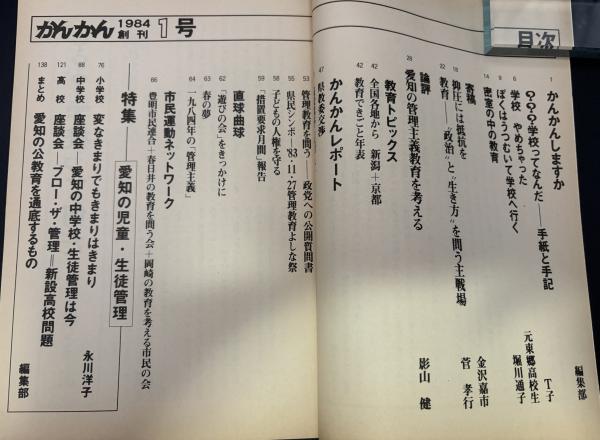 目次
1 かんかんしますか 編集部
???学校ってなんだ——手紙と手記
6 学校 やめちゃった T子
9 ぼくはうつむいて学校へ行く 元東郷高校生
14 密室の中の教育 堀川通子
寄稿
18 抑圧には抵抗を 金沢嘉市
22 教育——"政治"と"生き方"を問う主戦場 菅 孝行
論評
28 愛知の管理主義教育を考える 影山 健
教育トピックス
42 全国各地から 新潟+京都
42 教育できごと年表
かんかんレポート
47 県教委交渉
53 管理教育を問う 政党への公開質問書
55 県民シンポ '83・11・27管理教育よしな祭
58 子どもの人権を守る
59 「措置要求月間」報告
直球曲球
62 「遊びの会」をきっかけに
63 春の夢
64 一九八四年の「管理主義」
市民運動ネットワーク
66 豊明市民連合+春日井の教育を問う会+岡崎の教育を考える市民の会
特集 愛知の児童・生徒管理
76 小学校 変なきまりでもきまりはきまり 永川洋子
88 中学校 座談会——愛知の中学校・生徒管理は今
121 高校 座談会——ブロー・ザ・管理=新設高校問題
138 まとめ 愛知の公教育を通底するもの 編集部
かんかん 1984 創刊 1号